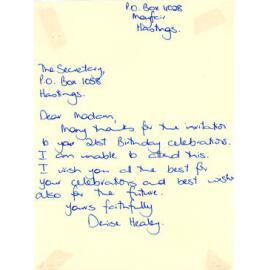 P.O. Box 4028
Mayfair
Hastings.
The Secretary,
P.O. Box 1058
Hastings.
Dear Madam,
Many thanks for the invitation
to your 21st Birthday celebrations.
I am unable to attend this.
I wish you all the best for
your celebrations and best wishes
also for the future.
Yours faithfully
Denise Healey.